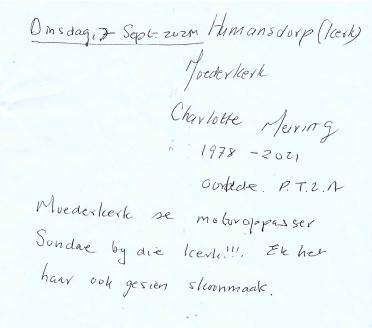 Dinsdag, 7 Sept 2021 Humansdorp (kerk)
Moederkerk
Charlotte Meiring
1978 - 2021
P.T.L.A
Moederkerk se motoroppasser
Sondae by die kerk!!!. Ek het
haar ook gesien skoonmaak.